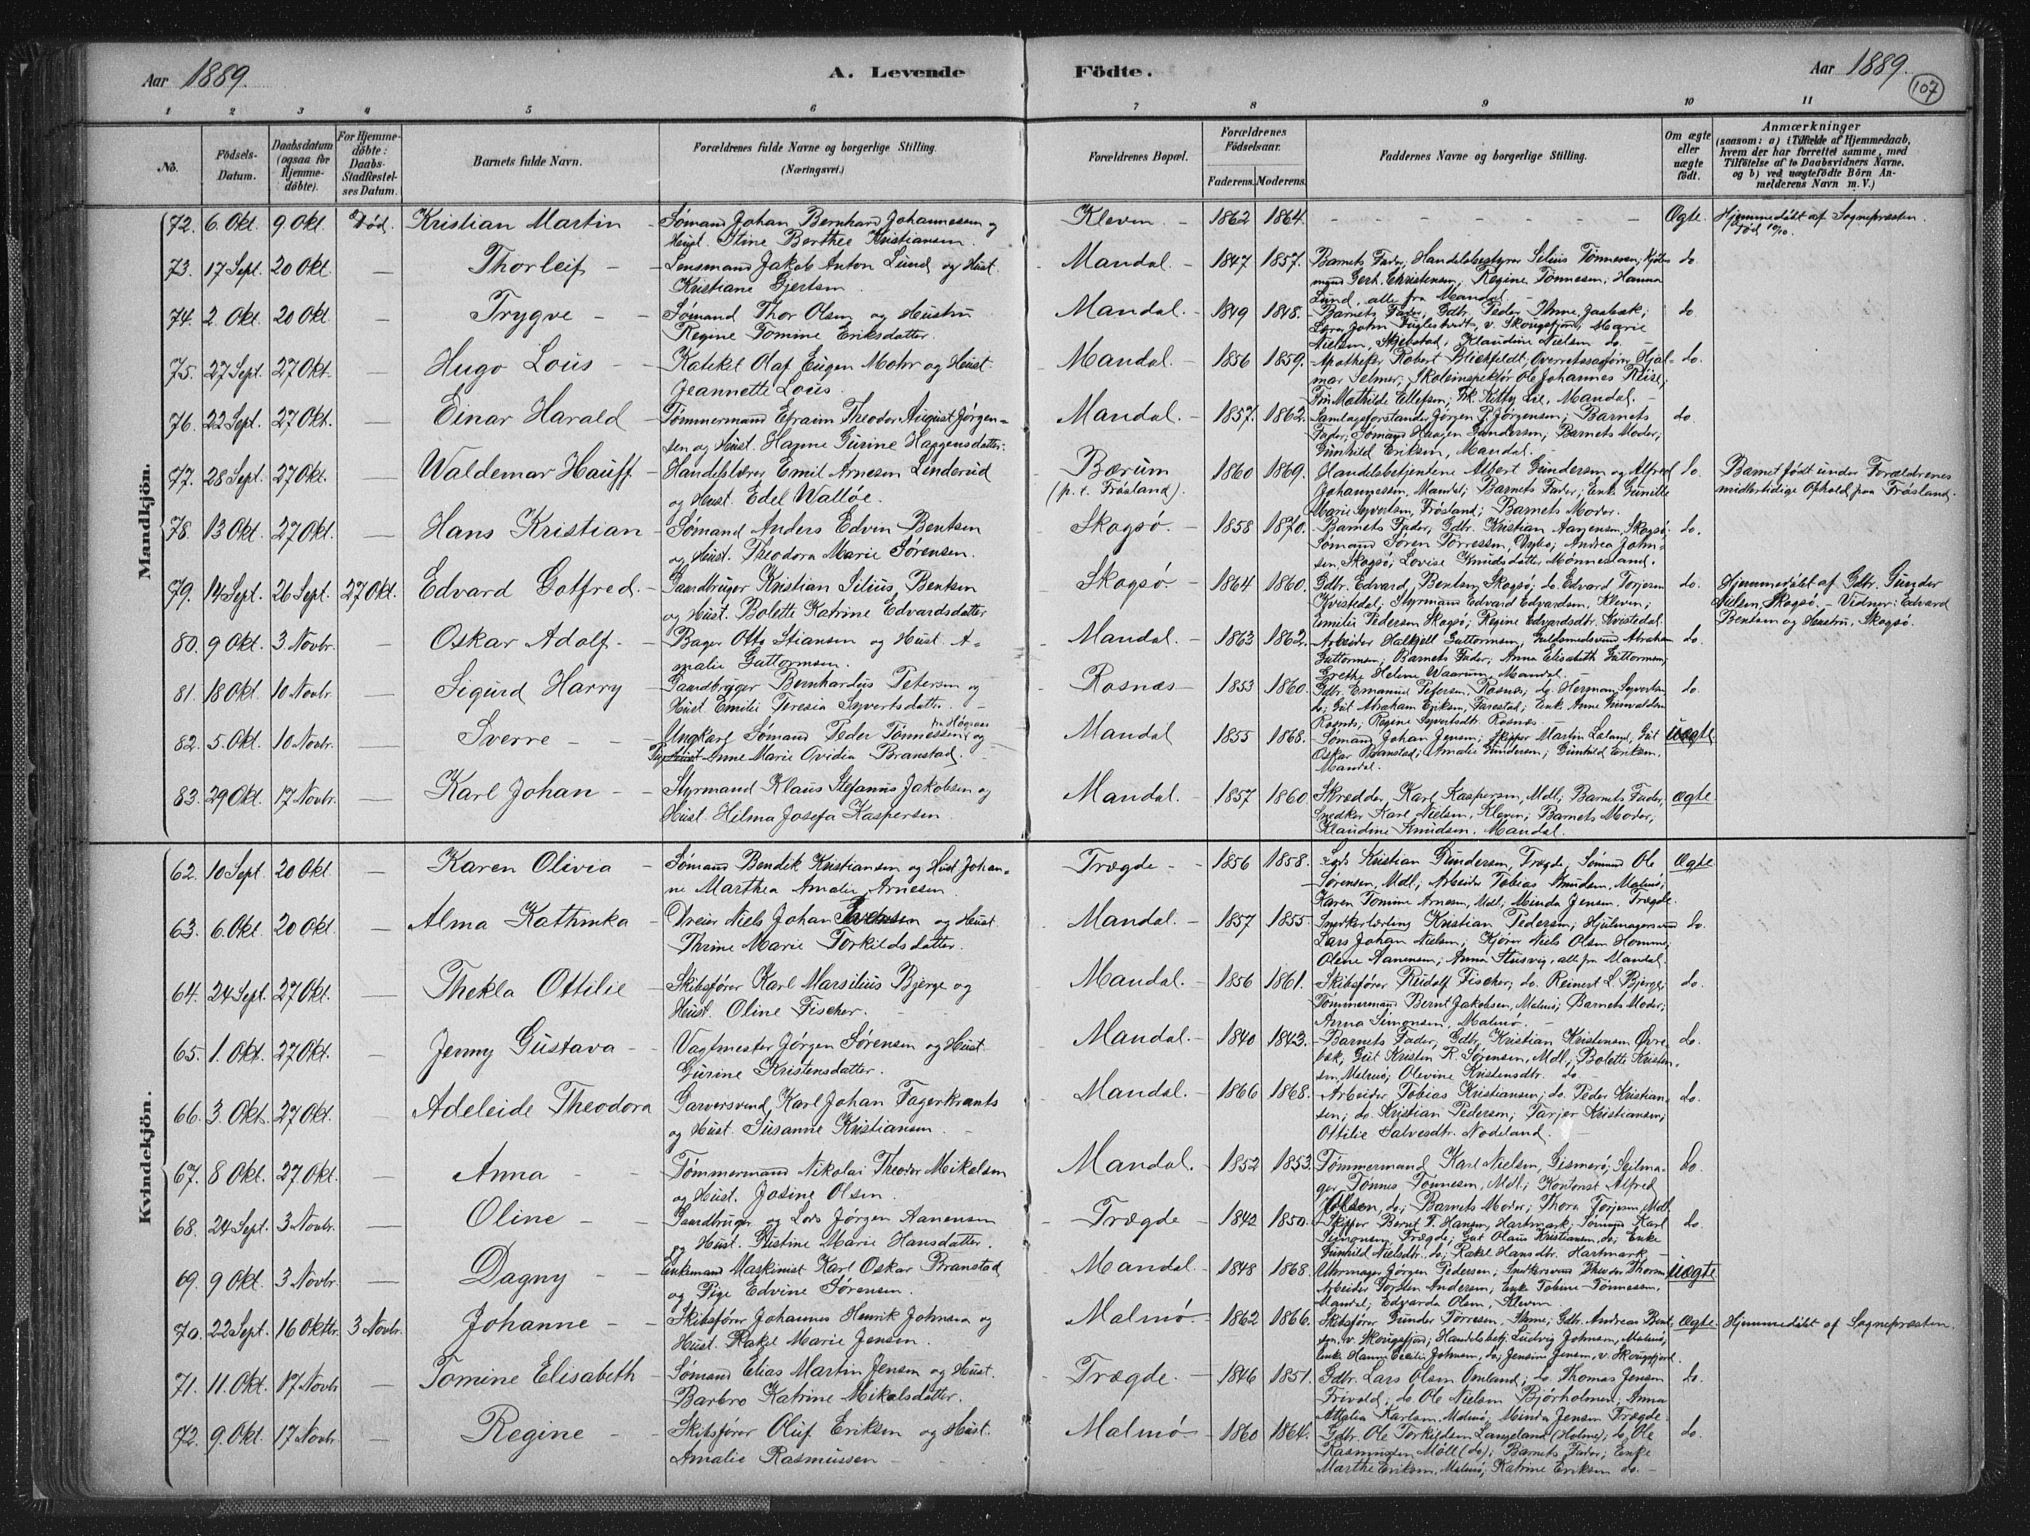 Aar 1889. A. Levende Fødte. Aar 1889. 107
1 2 3 4 5 6 7 8 9 10 11
No. Fødsels-Datum. Daabsdatum (ogsaa for Hjemmedøbte). For Hjemmedøbte: Daabs-Stadfæstelses Datum. Barnets fulde Navn. Forældrenes fulde Navne og borgerlige Stilling. (Næringsvei.) Forældrenes Bopæl. Forældrenes Fødselsaar. Faderens. Moderens. Faddernes Navne og borgerlige Stilling. Om ægte eller uægte født. Anmærkninger (saasom: a) i Tilfælde af Hjemmedaab, hvem der har forrettet samme, med Tilføielse af to Daabsvidners Navne, og b) ved uægtefødte Børn Anmelderens Navn m. V.)
Mandkjön.
72. 6 Okt. 9 Okt. Død. Kristian Martin - Sømand Johan Bernhard Johannesen og Kleven - 1862 1864. Ægte. Hjemmedøbt af Sognepræsten.
Hust. Stine Berthee Kristiansen. Død 10/10.
73. 17 Sept. 20 Okt. — Thorleif - Lensmand Jakob Anton Lund og Hust. Mandal. 1847 1857. Barnets Fader, Handelsbestyrer Selius Tønnesen; do.
Kristiane Gjertsen. Gerh. Christensen; Regine Tønnesen; Hanna
Lund, alle fra Mandal. -
74. 2 Okt. 20 Okt. — Trygve - Sømand Thor Olsen og Hustru Mandal. 1849 1848. Barnets Fader, Gdbr. Peder do.
Regine Tomine Eriksdatter. v. Skougsfjord; Marie
Nielsen, Klaudine Nielsen do. -
75. 27 Sept. 27 Okt. — Hugo Lous - Katekel Olaf Eugen Mohr og Hust. Mandal. 1856 1859. Apotheker Robert Blichfeldt; Overretssagfører Hjal- do.
Jeannette Lous. mar Selmer; Skoleinspektør Ole Johannes Riise;
Fru Mathilde Ellefsen; Frk. Kitty Lie, Mandal.
76. 22 Sept. 27 Okt. — Einar Harald Tømmermand Efraim Theodor August Jørgen- Mandal. 1857. 1862. Samlagsforstander Jørgen P. Jørgensen; Barnets do.
sen og Hust. Hanne Gurine Haagensdatter. Fader; Sømand Haagen Gundersen; Barnets Moder;
Gunhild Eriksen, Mandal. -
77. 28 Sept. 27 Okt. — Waldemar Hauff. Handelslærer Emil Arnesen Linderud Bærum 1860 1869. Handelsbetjentene Albert Gundersen og Alfred do. Barnet født under Forældrenes
og Hust. Edel Walløe. (p. t. Frøsland). Johannessen, Mandal; Barnets Fader; Enke Gunille midlertidige Ophold paa Frøsland.
Marie Syvertsen, Frøsland; Barnets Moder.
78. 13 Okt. 27 Okt. — Hans Kristian Sømand Anders Edvin Bentsen Skogsø. 1858 1870. Barnets Fader, Gdbr. Kristian Aanensen, Skogsø; do.
og Hust. Theodora Marie Sørensen. Sømand Søren Torressen, Andrea John-
sen, Skogsø; Lovise Knudsdatter Mønnesland.
79. 14 Sept. 26 Sept. 27 Okt. Edvard Gotfred. Gaardbruger Kristian Silius Bentsen Skogsø. 1864 1860. Gdbr. Edvard Bentsen, Skogsø; do. Edvard Torjesen do. Hjemmedøbt af Gdbr. Gunder
og Hust. Bolette Katrine Edvardsdatter Kvistedal; Styrmand Edvard Edvardsen, Kleven; Nielsen, Skogsø. - Vidner: Edvard
Emilie Pedersen Skogsø; Regine Edvardsdtr. Kvistedal. Bentsen og Hustru, Skogsø.
80. 9 Okt. 3 Novbr. - Oskar Adolf. Bager Otto Stiansen og Hust. A- Mandal. 1863 1862. Arbeider Halkjell Guttormsen; Guldsmedsvend Abraham do.
malie Guttormsen. Guttormsen; Barnets Fader; Anna Elisabeth Guttormsen;
Grethe Helene Waarum, Mandal. -
81. 18 Okt. 10 Novbr. - Sigurd Harry Gaardbruger Bernhardus Petersen og Rosnæs - 1853 1860. Gdbr. Emanuel Petersen, Rosnæs; do. Herman Syvertsen do.
Hust. Emilie Teresia Syvertsdatter. do; Gut Abraham Eriksen, Farestad; Enke Anne
Rosnæs; Regine Syvertsdtr. Rosnæs. -
82. 5 Okt. 10 Novbr. — Sverre - - Ungkarl Sømand Peder Tønnessen, og Mandal 1855 1868. Sømand Johan Jensen; Skipper Martin Laland, Gut uægte
Pige Anne Marie Ovidia Branstad. Oskar Branstad; Amalie Gundersen; Gunhild Eriksen,
Mandal.
83. 29 Okt. 17 Novbr. — Karl Johan - - Styrmand Klaus Stefanus Jakobsen og Mandal. 1857 1860 Skrædder Karl Kaspersen, Mdl; Barnets Fader, ægte.
Hust. Hilma Josefa Kaspersen. Snedker Karl Nielsen, Kleven; Barnets Moder;
Klaudine Knudsen, Mandal.
Kvindekjön.
62. 10 Sept. 20 Okt. — Karen Olivia - Sømand Bendik Kristiansen og Hust. Johan- Trægde - 1856 1858. Kristian Gundersen, Trægde, Sømand Ole Ægte
ne Marthea Amalie Arnesen. Sørensen, Mdl; Arbeider Tobias Knudsen, Malmø;
Karen Tomine Arnesen, Mdl; Minda Jensen, Trægde.
63. 6 Okt. 20 Okt. — Alma Kathinka - Dreier Niels Johan og Hust. Mandal. 1857 1855. Snedkerlærling Kristian Pedersen; Hjulmagersvend do.
Thrine Marie Torkildsdatter. Lars Johan Nielsen; Kjører Niels Olsen Homme;
Olene Aanensen; Anna Stusvig, alle fra Mandal.
64. 24 Sept. 27 Okt. — Thekla Ottilie - Skibsfører Karl Marsilius Bjerge og Mandal. 1856 1861. Skibsfører Rudolf Fischer; do. Reinert L. Bjerge; do.
Hust. Oline Fischer. Tømmermand Bernt Jakobsen, Malmø; Barnets Moder;
Anna Simonsen, Malmø. -
65. 1. Okt. 27 Okt. — Jenny Gustava - Vagtmester Jørgen Sørensen og Hust. Mandal. 1840 1843. Barnets Fader, Gdbr. Kristian Kristensen Øvre- do.
Gurine Kristensdatter. bæk, Gut Kristen R. Sørensen, Mdl; Bolette Kristen-
sen, Malmø; Olevine Kristensdtr. do.
66. 3 Okt. 27 Okt. — Adeleide Theodora Garversvend Karl Johan Fagerkrants Mandal. 1866 1868. Arbeider Tobias Kristiansen; do. Peder Kristian- do.
og Hust. Susanne Kristiansen. sen; do. Kristian Pedersen; Tarjer Kristiansen;
Ottilie Salvesdtr. Nodeland.
67. 8 Okt. 27 Okt. — Anna - Tømmermand Nikolai Theodor Mikelsen Mandal. 1852 1853. Tømmermand Karl Nielsen, Gismerø; Seilma- do.
og Hust. Josine Olsen. ger Tønnes Tønnesen, Mdl; Kontorist Alfred
Olsen, do; Barnets Moder; Thora Torjesen Mdl.
68. 24 Sept. 3 Novbr. — Oline - - Gaardbruger og Lods Jørgen Aanensen Trægde - 1842 1850. Skipper Bernt T. Hansen, Hartmark; Sømand Karl do.
og Hust. Gustine Marie Hansdatter. Simonsen, Trægde; Gut Olaus Kristiansen, do; Enke
Gunhild Nielsdtr. do; Rakel Hansdtr. Hartmark. -
69. 9 Okt. 3 Novbr. — Dagny - - Enkemand Maskinist Karl Oskar Branstad Mandal - 1848 1868. Uhrmager Jørgen Pedersen; Snedkersvend Theodor uægte
og Pige Edvine Sørensen. Arbeider Torsten Andersen; Enke Tobine Tønnessen,
Mandal; Edvarda Olsen, Kleven
70. 22 Sept. 16 Oktbr. 3 Novbr. Johanne - Skibsfører Johannes Henrik Johnsen og Malmø - 1862 1866. Skibsfører Gunder Torresen, Gdbr. Andreas Bent- Ægte Hjemmedøbt af Sognepræsten.
Hust. Rakel Marie Jensen. sen v. Skougsfjord; Handelsbetj. Ludvig Johnsen, Malmø;
Enke Hanne Cecilie Johnsen, do; Jensine Jensen, v. Skougsfjord.
71. 11. Okt. 17 Novbr — Tomine Elisabeth Sømand Elias Martin Jensen og Hust. Trægde. - 1846 1851. Gdbr. Lars Olsen Omland; do. Thomas Jensen do.
Barbro Katrine Mikalsdatter. Frivold; do. Ole Nielsen Bjørholmen; Anna
Attalia Karlsen, Malmø; Minda Jensen Trægde.
72. 9. Okt. 17 Novbr. — Regine - Skibsfører Oluf Eriksen og Hust. Malmø - 1860 1864. Gdbr. Ole Torkildsen Langeland (Holme); do. Ole do.
Amalie Rasmussen - Rasmussen Møll (do); Barnets Fader; Enke
Marthe Eriksen, Malmø; Katrine Eriksen do. -